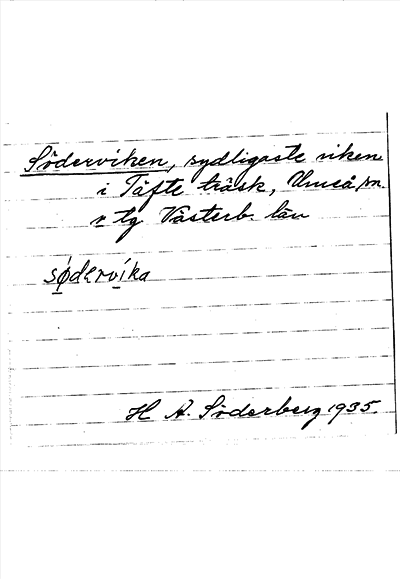 Söderviken, sydligaste viken
i Täfte träsk, Umeå sn.
o tg Västerb. län
sødervika
H A. Söderberg 1935.